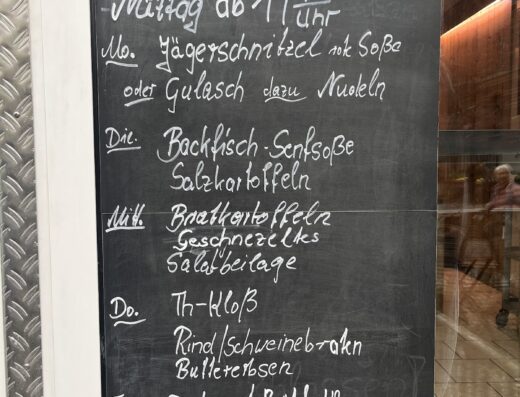 Mittag ab 11 Uhr
Mo. Jägerschnitzel rote Soße
oder Gulasch dazu Nudeln
Die. Backfisch-Senfsoße
Salzkartoffeln
Mitt. Bratkartoffeln
Geschnezeltes
Salatbeilage
Do. Th-Kloß
Rind/Schweinebraten
Buttererbsen